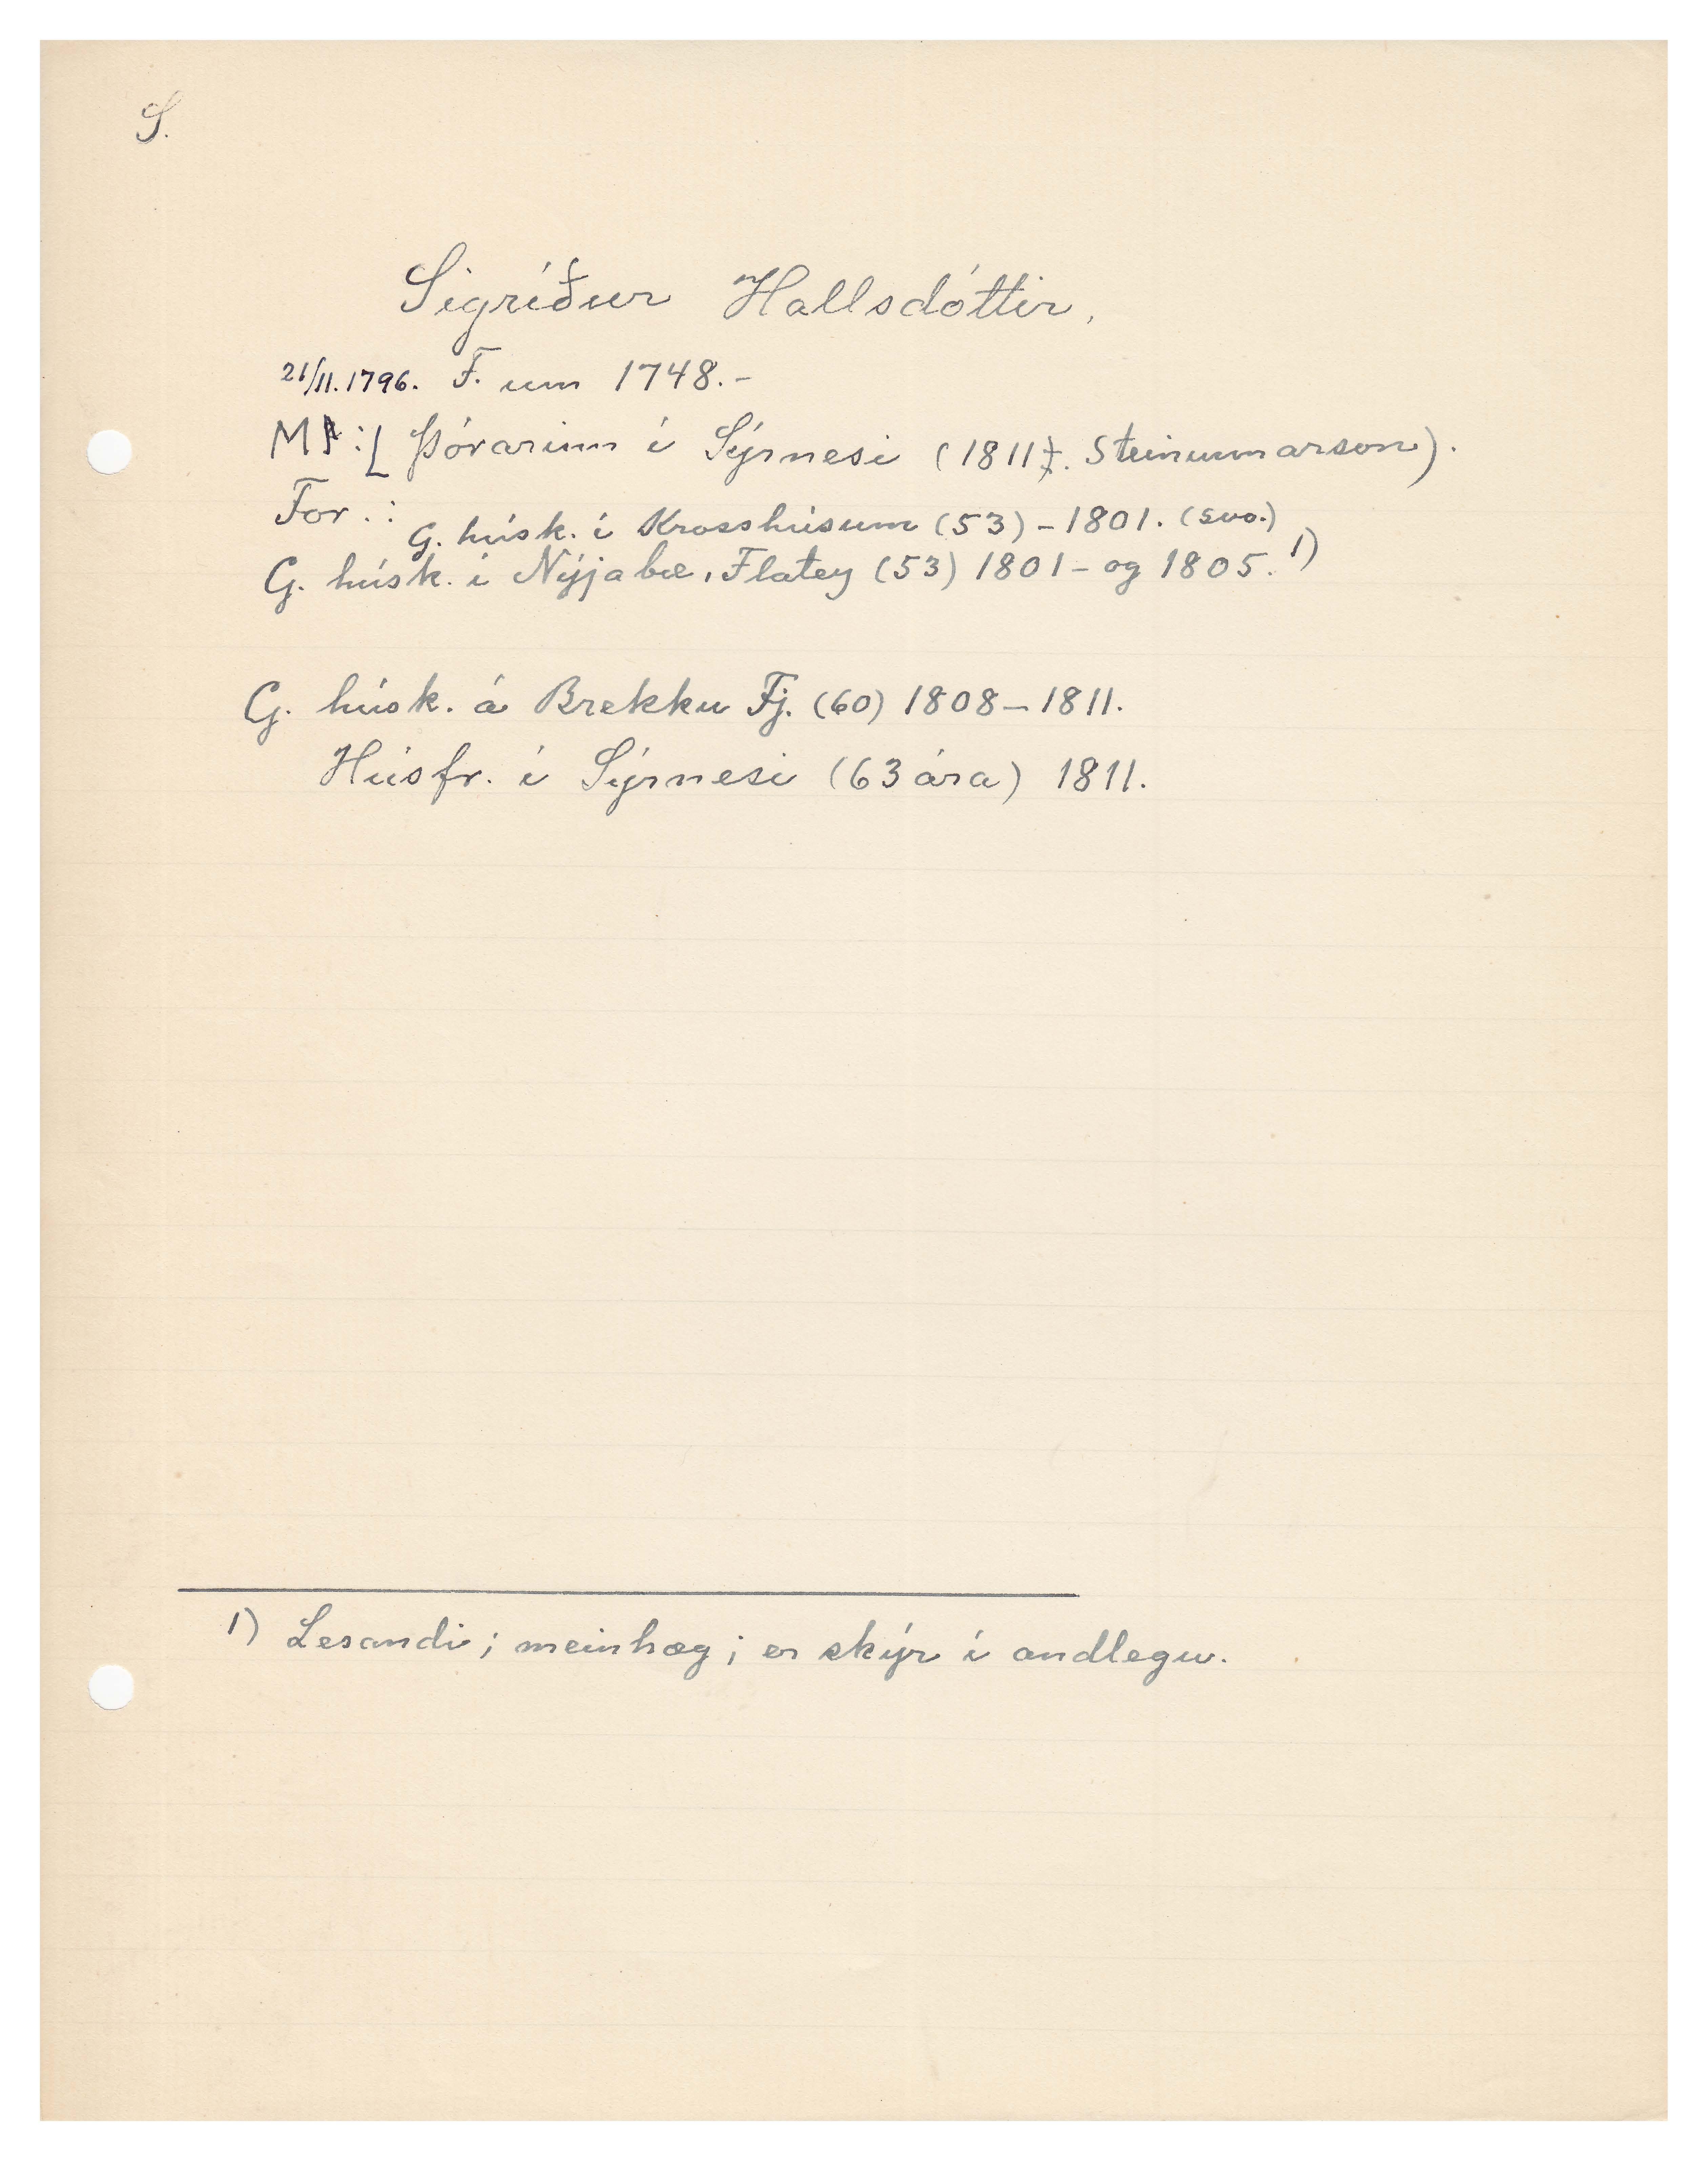 S.
Sigríður Hallsdóttir,
21/11.1796. F. um 1748.-
M : [ Þórarinn í Sýrnesi (1811). Steinunnarson).
For. :
G. húsk. í Krosshúsum (53) - 1801. (svo.)
G. húsk. í Nýjabæ, Flatey (53) 1801 - og 1805. 1)
G. húsk. á Brekku Fj. (60) 1808 - 1811.
Húsfr. í Sýrnesi (63 ára) 1811.
1) Lesandi; meinhæg; er skýr í andlegu.